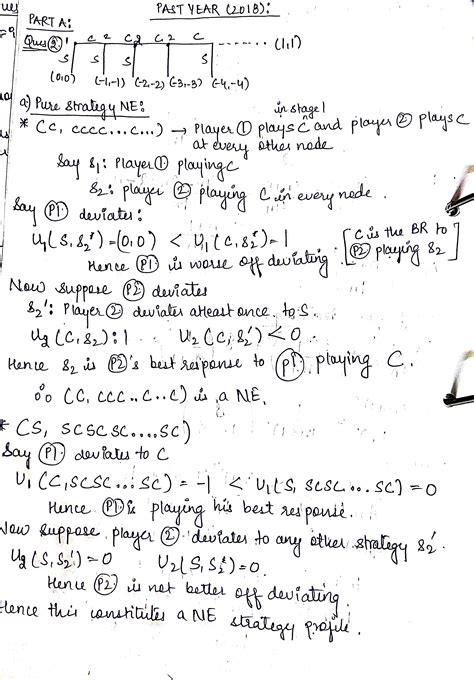 PAST YEAR (2018):
PART A:
Ques ②
1 C 2 C 2 C 2 C ........ (1,1)
S S S S S
(0,0) (-1,-1) (-2,-2) (-3,-3) (-4,-4)
a) Pure strategy NE:
* (C, CCCC...C...) → Player ① plays C in stage 1 and player ② plays C
at every other node
Say s₁: Player ① playing C
s₂: player ② playing C in every node.
Say P1 deviates:
U₁(S, s₂*) = (0,0) < U₁(C, s₂*) = 1 [C is the BR to
Hence P1 is worse off deviating. P2 playing s₂]
Now suppose P2 deviates
s₂': Player ② deviates atleast once to S.
U₂(C, s₂): 1 U₂(C, s₂') < 0
Hence s₂ is P2's best response to P1 playing C.
∴ (C, CCC..C..C) is a NE.
* (S, SCSCSC....SC)
Say P1 deviates to C
U₁(C, SCSC...SC) = -1 < U₁(S, SCSC...SC) = 0
Hence P1 is playing his best response.
Now suppose player ② deviates to any other strategy s₂'.
U₂(S, s₂') = 0 U₂(S, s₂*) = 0.
Hence P2 is not better off deviating
Hence this constitutes a NE strategy profile.